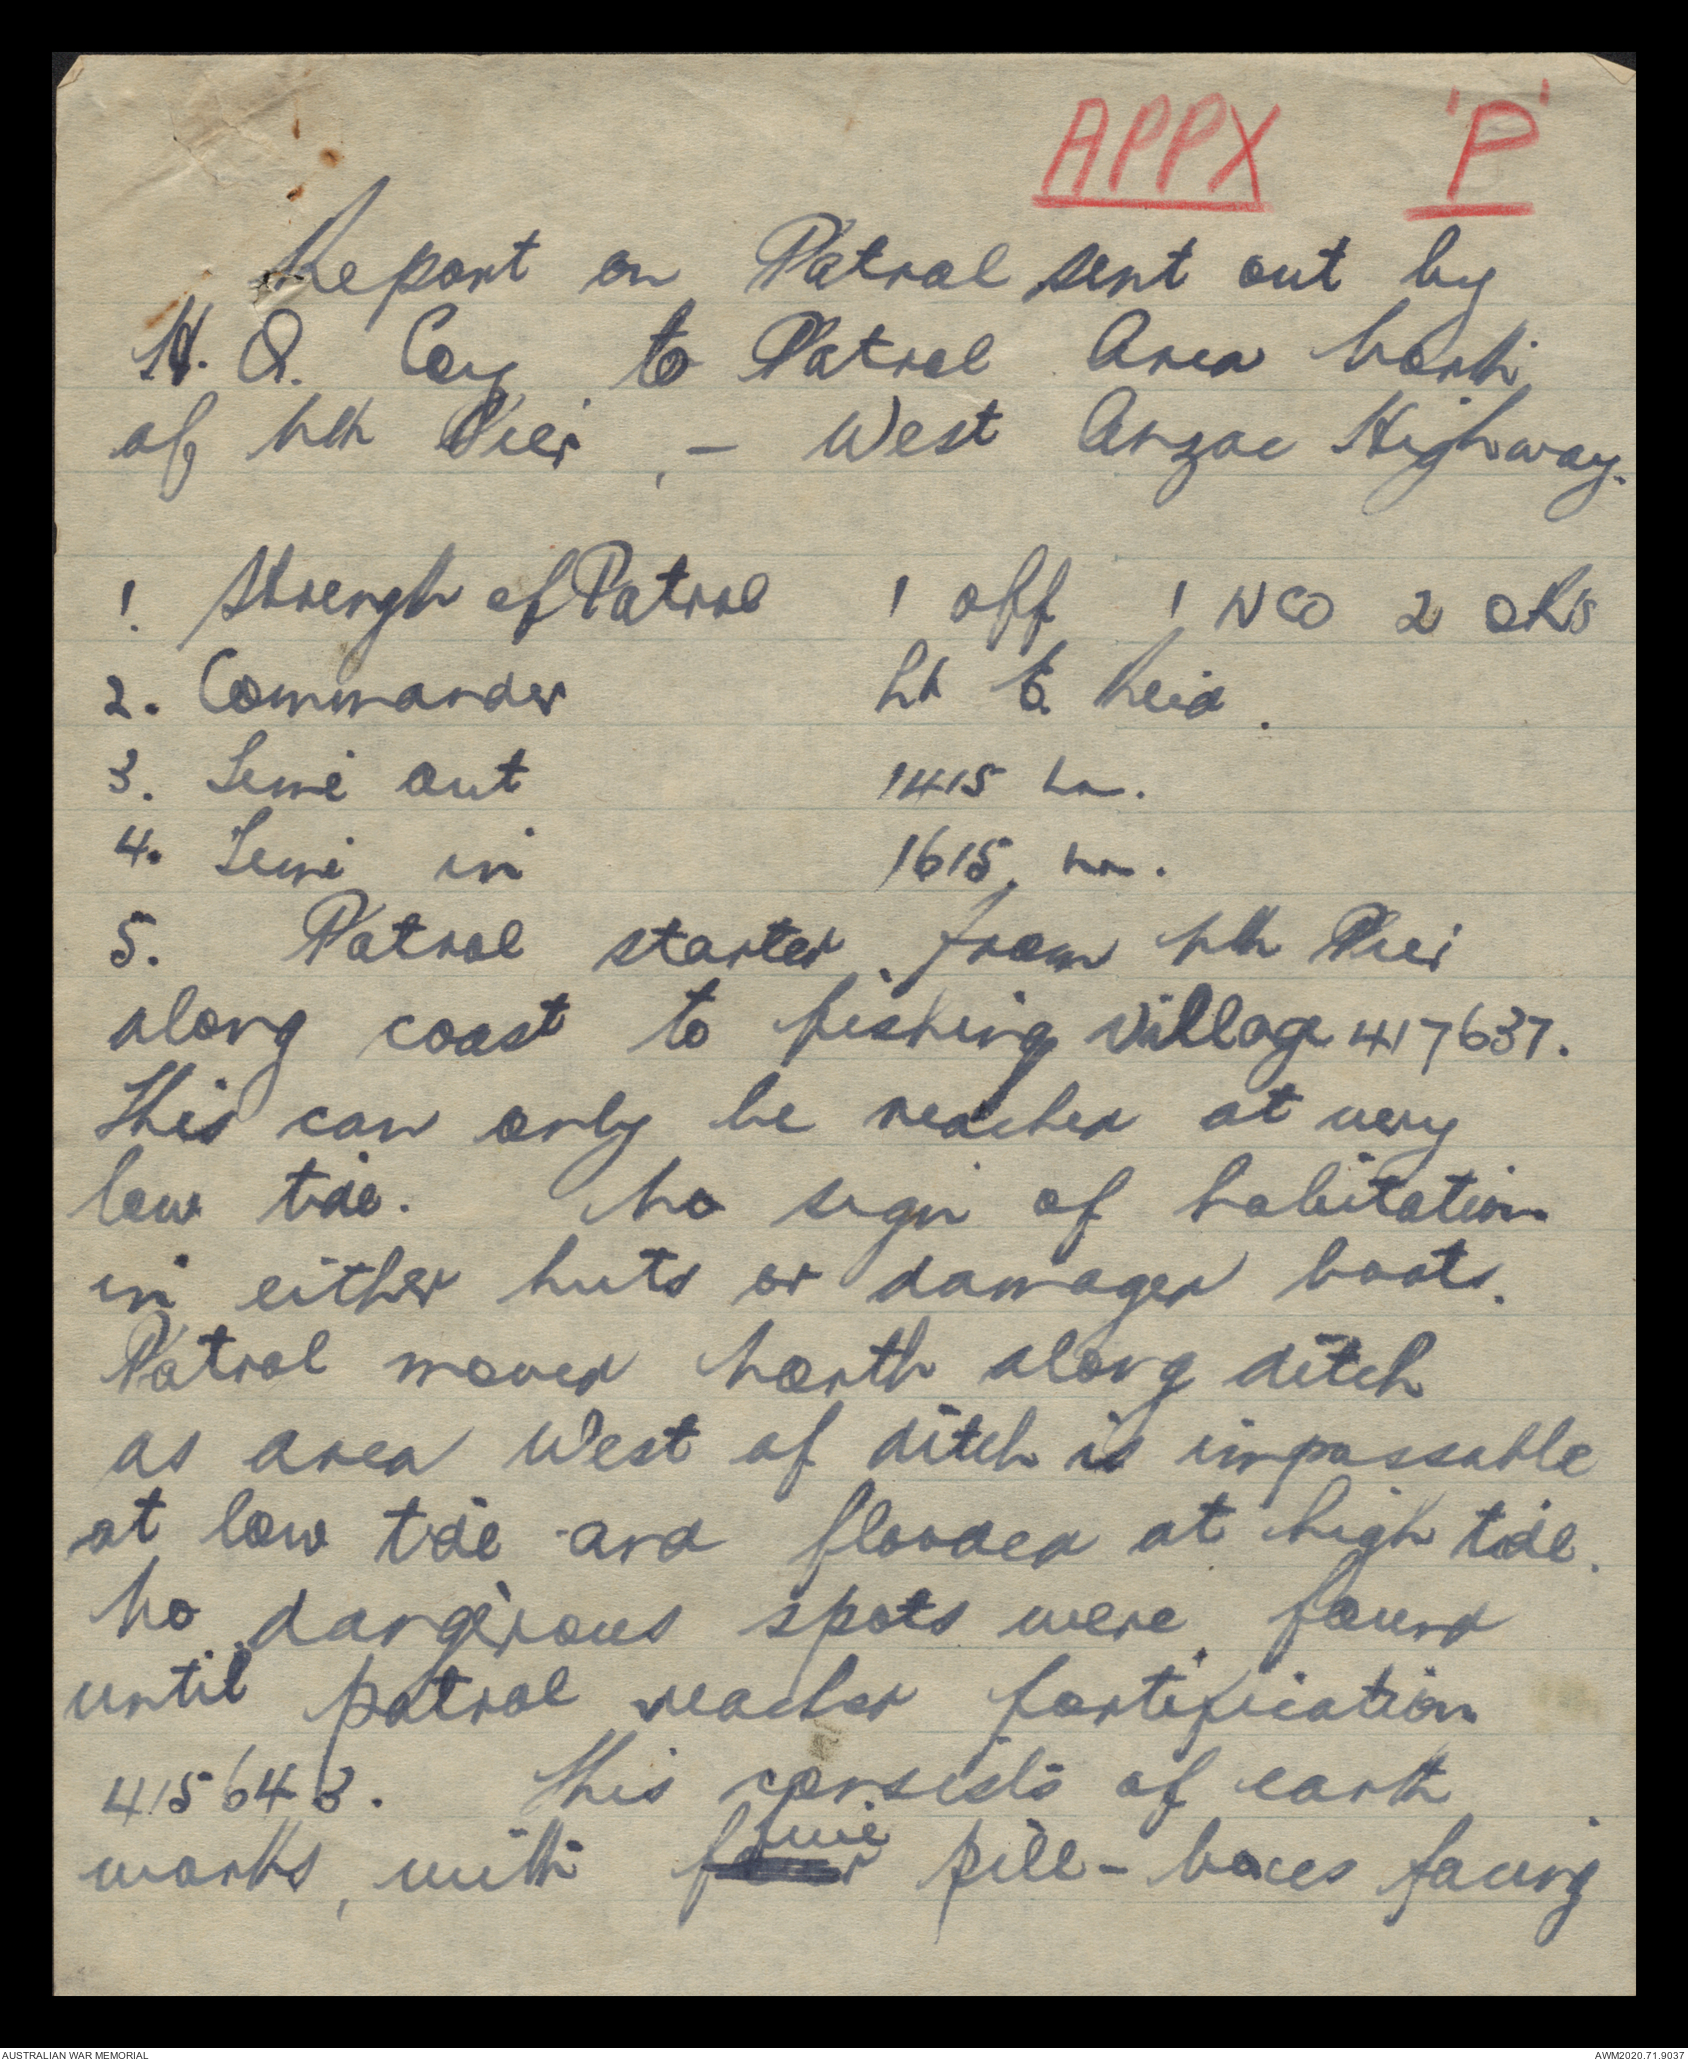 APPX 'P'
Report on Patrol sent out by
H.Q. Coy to Patrol Area North
of Nth Pier, - West Anzac Highway.
1. Strengh of Patrol 1 off 1 NCO 2 ORs
2. Commander Lt Reid.
3. Time out 1415 hrs.
4. Time in 1615 hrs.
5. Patrol started from Nth Pier
along coast to fishing village 417637.
This can only be reached at very
low tide. No sign of habitation
in either huts or damaged boats.
Patrol moved North along ditch
as area West of ditch is impassable
at low tide and flooded at high tide.
No dangerous spots were found
until patrol reached fortification
415643. This consists of earth
works, with five pill-boxes facing
AUSTRALIAN WAR MEMORIAL AWM2020.71.9037